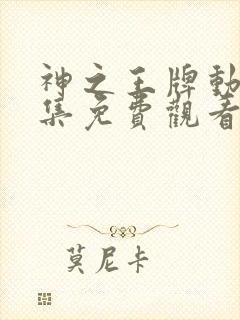 神之王牌動
集免費觀看
莫尼卡